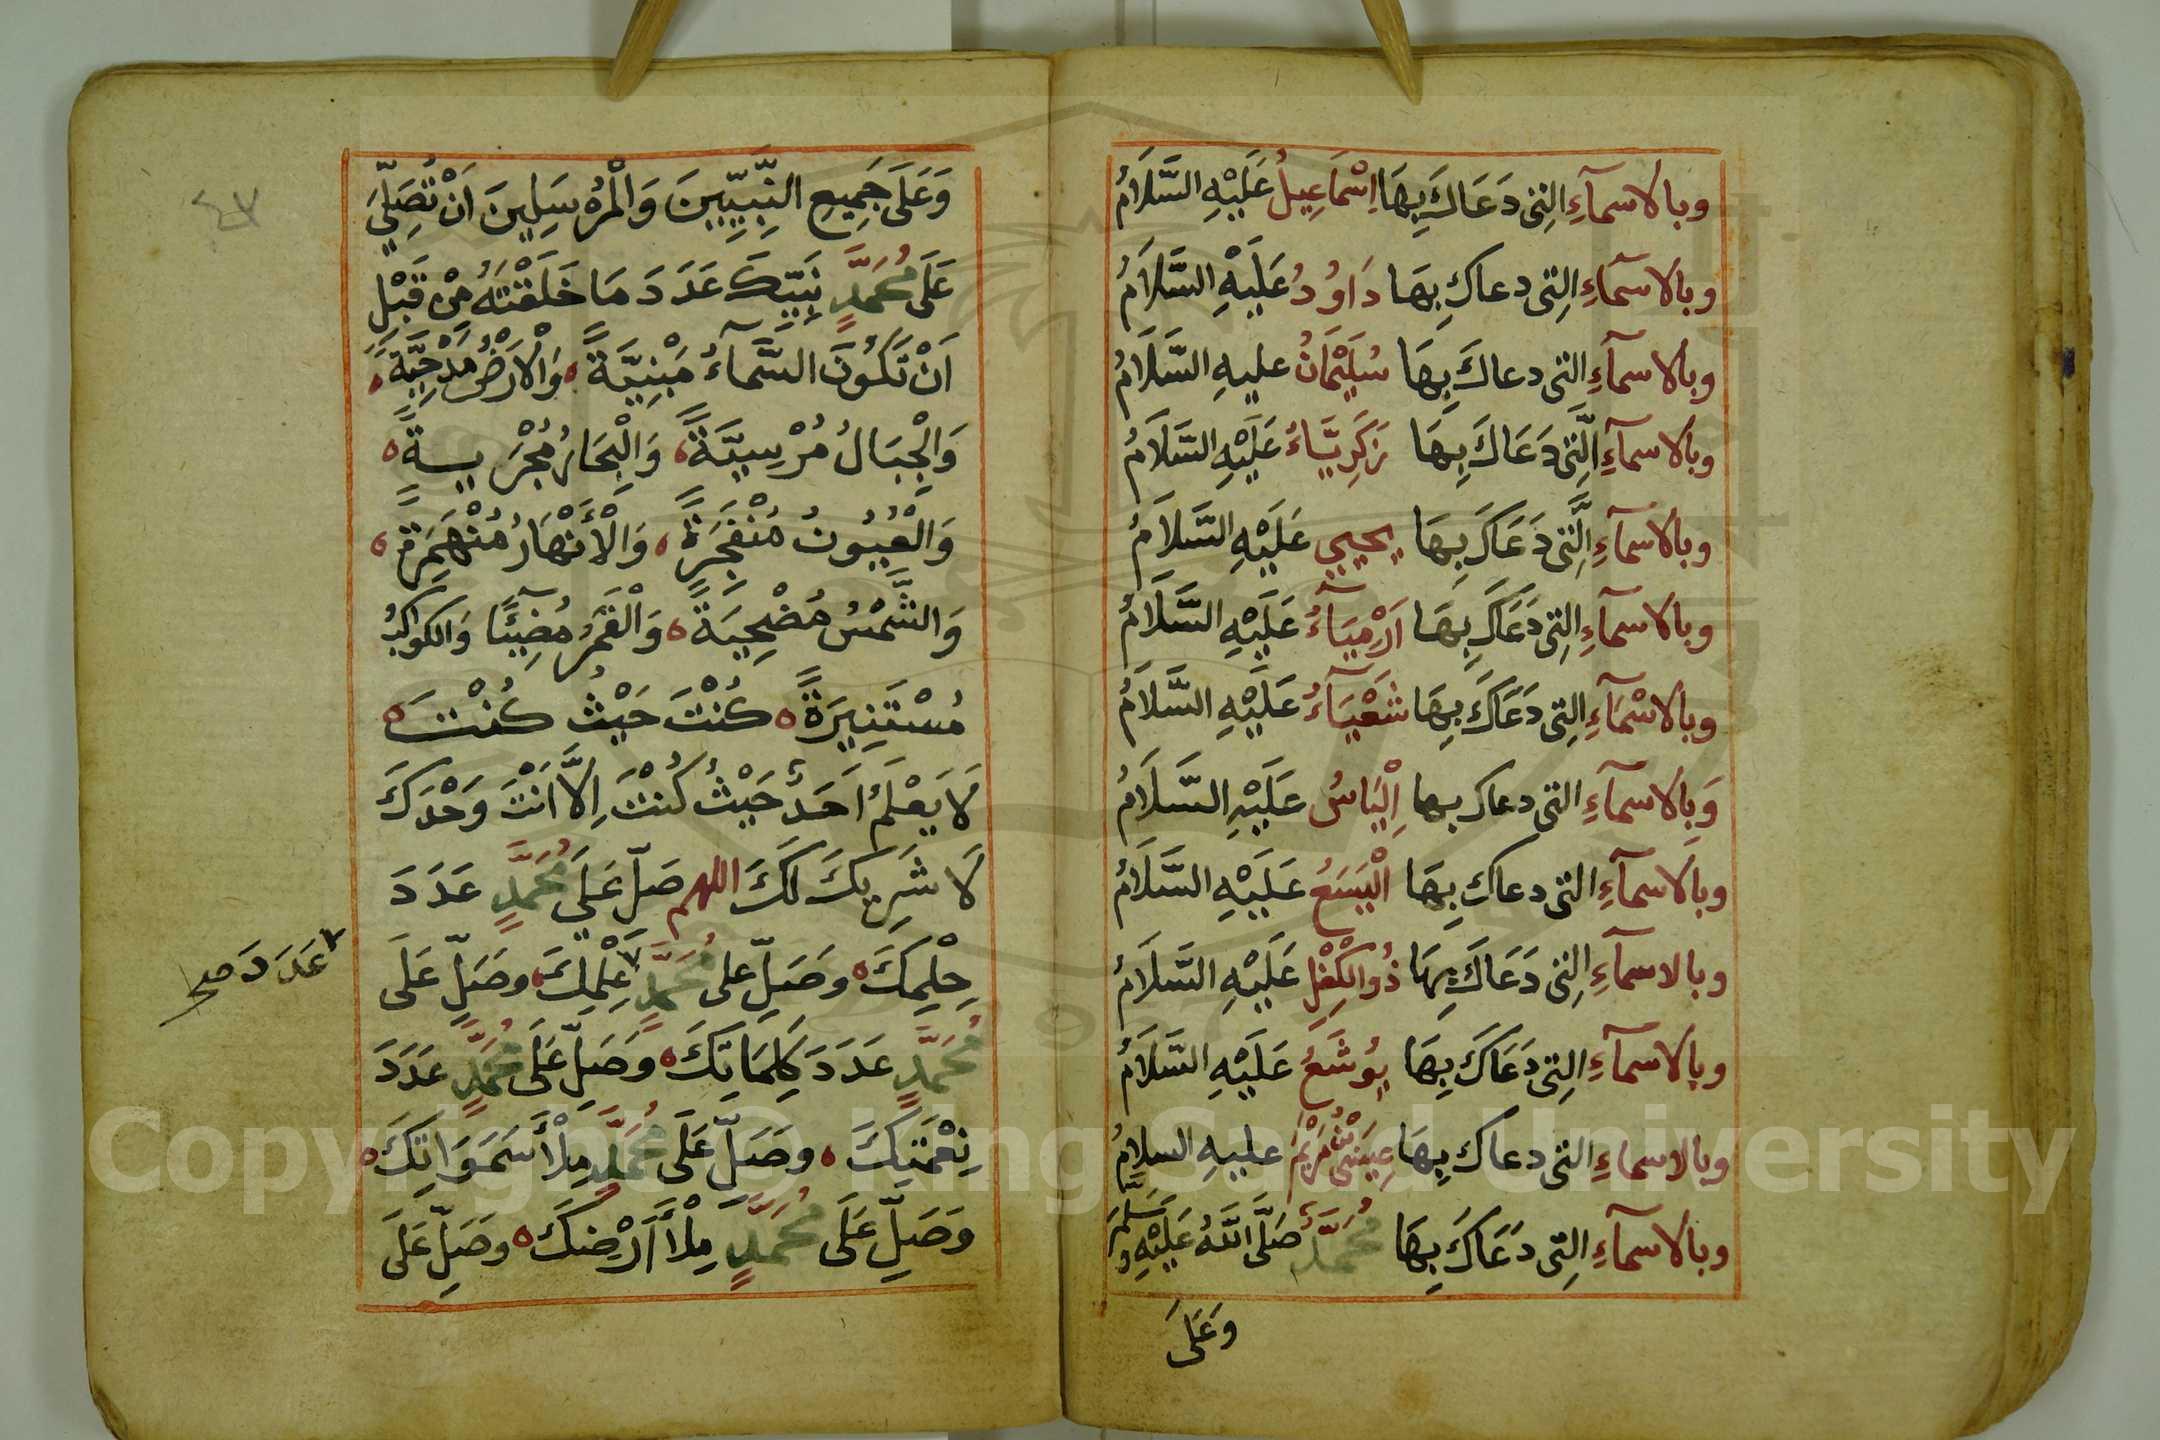 وبالاسمآءِ التِى دَعَاكَ بِهَا اِسْمَاعِيلُ عَلَيْهِ السَّلَامُ
وبالاسمآءِ التِى دعاكِ بِهَا دَاوُدُ عَلَيْهِ السَّلَامُ
وبالاسمآءِ التى دعاكَ بِهَا سُلَيْمَانُ عليهِ السَّلَامُ
وبالاسمآءِ الَّتِى دَعَاكَ بِهَا زَكَرِيَّاءُ عَلَيْهِ السَّلَامُ
وبالاسمآءِ الَّتِى دَعَاكَ بِهَا يحيي عَلَيْهِ السَّلَامُ
وبالاسمآءِ التِى دَعَاكَ بِهَا اَرْمِيَآءُ عَلَيْهِ السَّلَامُ
وبالاسْمَآءِ التِى دَعَاكَ بِهَا شَعْيَآءُ عَلَيْهِ السَّلَامُ
وَبِالاسمآءِ التى دعاك بها اِلْيَاسُ عَلَيْهِ السَّلَامُ
وبالاسمآءِ التى دعاكِ بِهَا الْيَسَعُ عَلَيْهِ السَّلَامُ
وبالاسمآءِ التِى دَعَاكَ بِهَا ذُوالْكِفْلِ عَلَيْهِ السَّلَامُ
وبالاسمآءِ التِى دَعَاكَ بِهَا يُوشَعُ عَلَيْهِ السَّلَامُ
وبالاسماءِ التى دعاك بِهَا عِيسَى بْنُ مَرْيَمَ عليهِ السلامُ
وبالاسمآءِ التِى دَعَاكَ بِهَا مُحَمَّدٌ صَلَّى اللَّهُ عَلَيْهِ وسَلَّمَ
وَعَلَى
وَعَلَى جَمِيعِ النَّبِيِّينَ وَالْمُرْسَلِينَ اَنْ تُصَلِّيَ
عَلَى مُحَمَّدٍ نَبِيِّكَ عَدَدَ مَا خَلَقْتَهُ مِنْ قَبْلِ
اَنْ تَكُونَ السَّمَآءُ مَبْنِيَّةً وَالْاَرْضُ مَدْحِيَّةً
وَالْجِبَالُ مُرْسِيَّةً وَالْبِحَارُ مُجْرَيسةً
وَالْعُيُونُ مُنْفَجِرَةً وَالْأَنْهَارُ مُنْهَمِرَةً
وَالشَّمْسُ مُضْحِيَةً وَالْقَمَرُ مُضِيْئًا وَالكَواكِبُ
مُسْتَنِيرَةً كُنْتَ حَيْثُ كُنْتَ
لَا يَعْلَمُ اَحَدٌ حَيْثُ كُنْتَ اِلاَّ اَنْتَ وَحْدَكَ
لَا شَرِيكَ لَكَ اللهم صَلِّ عَلَي مُحَمَّدٍ عَدَدَ
حِلْمِكَ وصَلِّ على مُحَمَّدٍ عِلْمِكَ وصَلِّ عَلَى
عَدَدَ صح
مُحَمَّدٍ عَدَدَ كَلِمَاتِكَ وصَلِّ عَلَى مُحَمَّدٍ عَدَدَ
نِعْمَتِكَ وصَلِّ عَلَى مُحَمَّدٍ مِلْأَ سَمَوَاتِكَ
وَصَلِّ عَلَى مُحَمَّدٍ مِلْأَ اَرْضِكَ وصَلِّ عَلَى
٤٧
Copyright © King Saud University